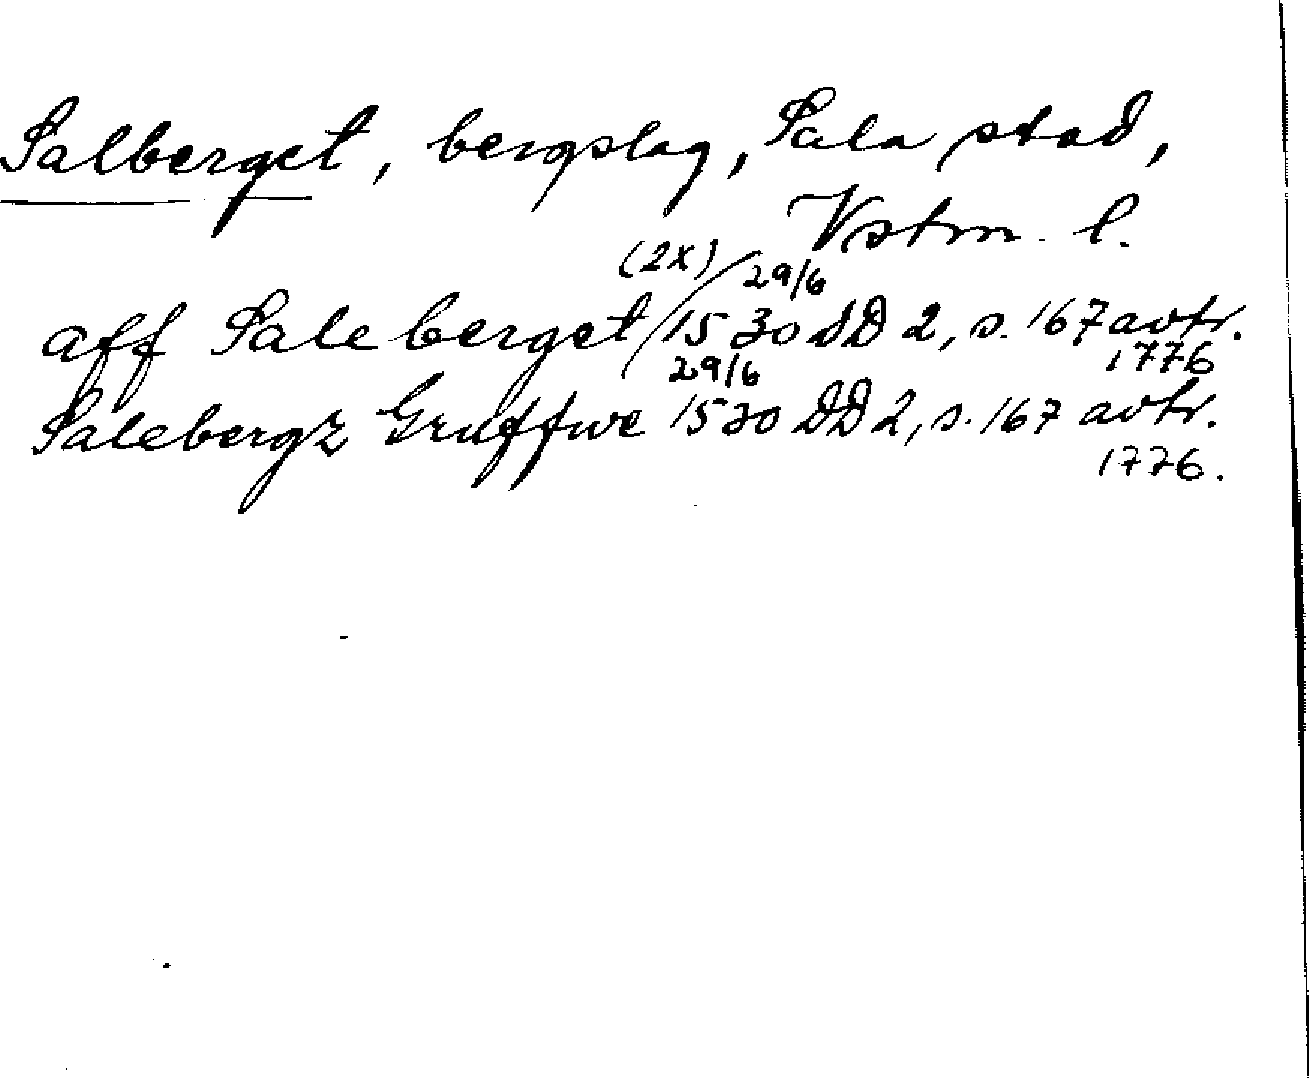 Salberget, bergslag, Sala stad,
Vstm. l.
aff Saleberget (2x) 29/6 1530 DD 2, s. 167 avtr. 1776
Salebergz Gruffwe 29/6 1530 DD 2, s. 167 avtr.
1776.